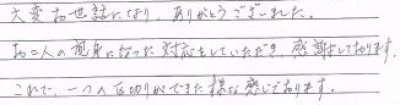 大変お世話になり、ありがとうございました。
お二人の親身になった対応をしていただき、感謝しております。
これで、一つの区切りができた様な感じであります。